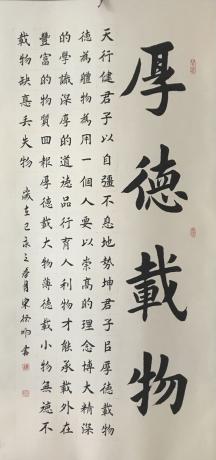 厚德載物
天行健君子以自彊不息地勢坤君子以厚德載物
德為體物為用一個人要以崇高的理念博大精深
的學識深厚的道德品行育人利物才能承載外在
豐富的物質回報厚德載大物薄德載小物無德不
載物缺惠丢失物
歲在己亥之春月